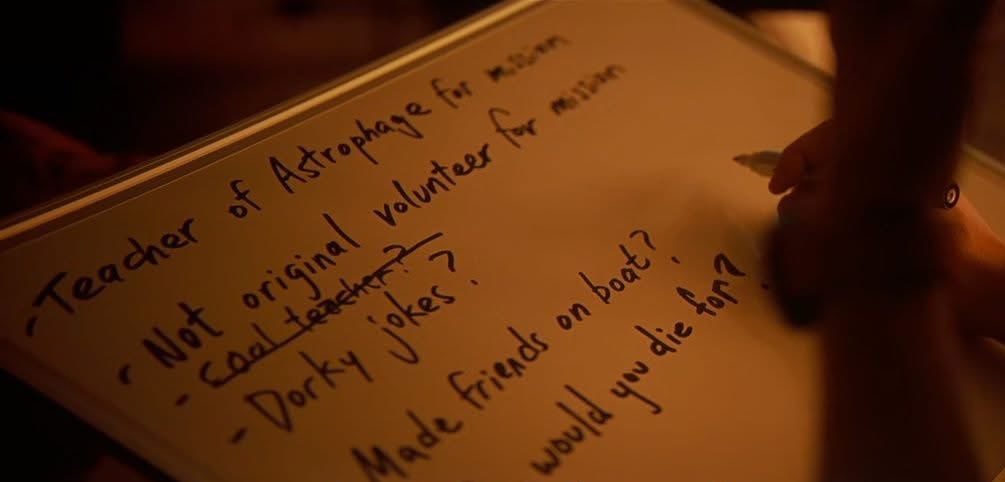 - Teacher of Astrophage for mission
- Not original volunteer for mission
- Cool teacher?
- Dorky jokes?
Made friends on boat?
would you die for?